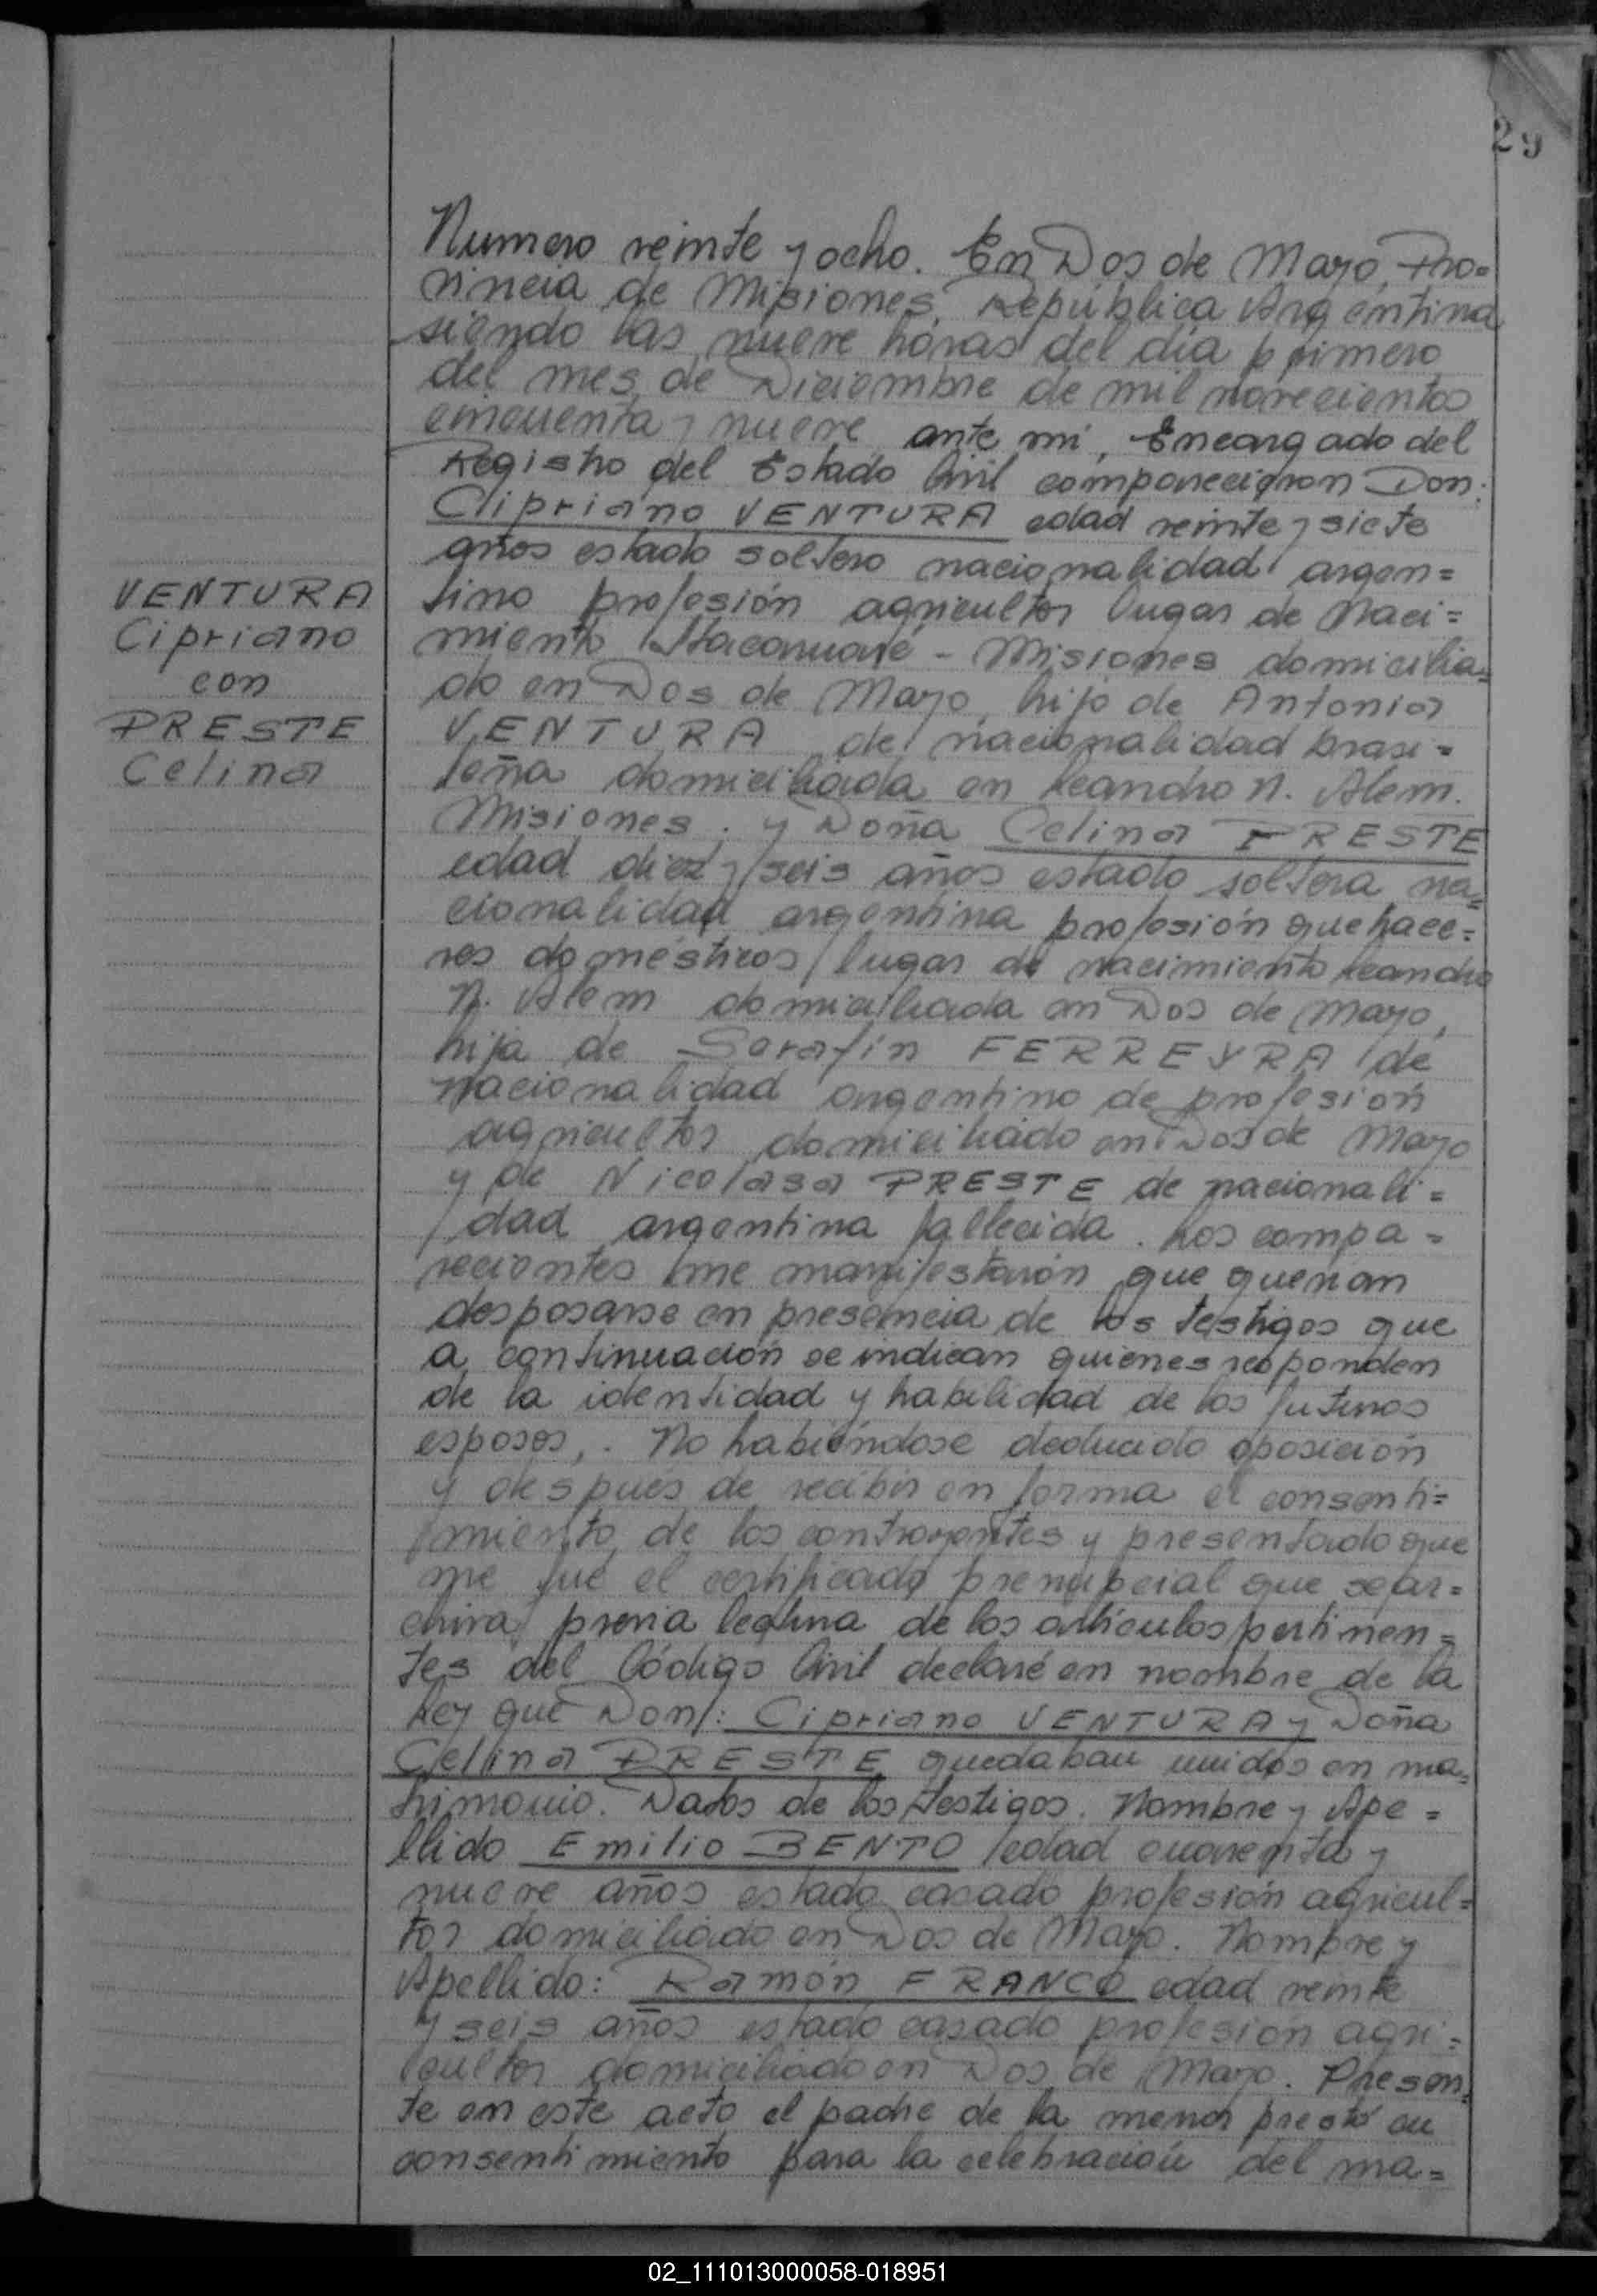 29
Numero veinte y ocho. En Dos de Mayo, Pro=
vincia de Misiones, República Argentina
siendo las nueve horas del día primero
del mes de Diciembre de mil novecientos
cincuenta y nueve ante mi, Encargado del
Registro del Estado Civil comparecieron Don:
Cipriano VENTURA edad veinte y siete
años estado soltero nacionalidad argen=
tino profesión agricultor lugar de Naci=
miento Itacaruaré - Misiones domicilia=
do en Dos de Mayo, hijo de Antonia
VENTURA de nacionalidad brasi=
leña domiciliada en Leandro N. Alem.
Misiones. y Doña Celina PRESTE
edad diez y seis años estado soltera na=
cionalidad argentina profesión quehace=
res domésticos lugar de nacimiento Leandro
N. Alem domiciliada en Dos de Mayo,
hija de Serafín FERREYRA de
nacionalidad argentino de profesión
agricultor domiciliado en Dos de Mayo
y de Nicolasa PRESTE de nacionali=
dad argentina fallecida. Los compa=
recientes me manifestarón que querian
desposarse en presencia de los testigos que
a continuación se indican quienes responden
de la identidad y habilidad de los futuros
esposos,. No habiéndose deducido oposición
y después de recibir en forma el consenti=
miento de los contrayentes y presentado que
me fué el certificado prenupcial que se ar=
chiva, previa lectura de los artículos pertinen=
tes del Código Civil declaré en nombre de la
Ley que Don: Cipriano VENTURA y Doña
Celina PRESTE quedaban unidos en ma=
trimonio. Datos de los testigos. Nombre y Ape=
llido Emilio BENTO edad cuarenta y
nueve años estado casado profesión agricul=
tor domiciliado en Dos de Mayo. Nombre y
Apellido: Ramón FRANCO edad veinte
y seis años estado casado profesión agri=
cultor domiciliado en Dos de Mayo. Presen=
te en este acto el padre de la menor prestó su
consentimiento para la celebración del ma=
VENTURA
Cipriano
con
PRESTE
Celina
02_111013000058-018951